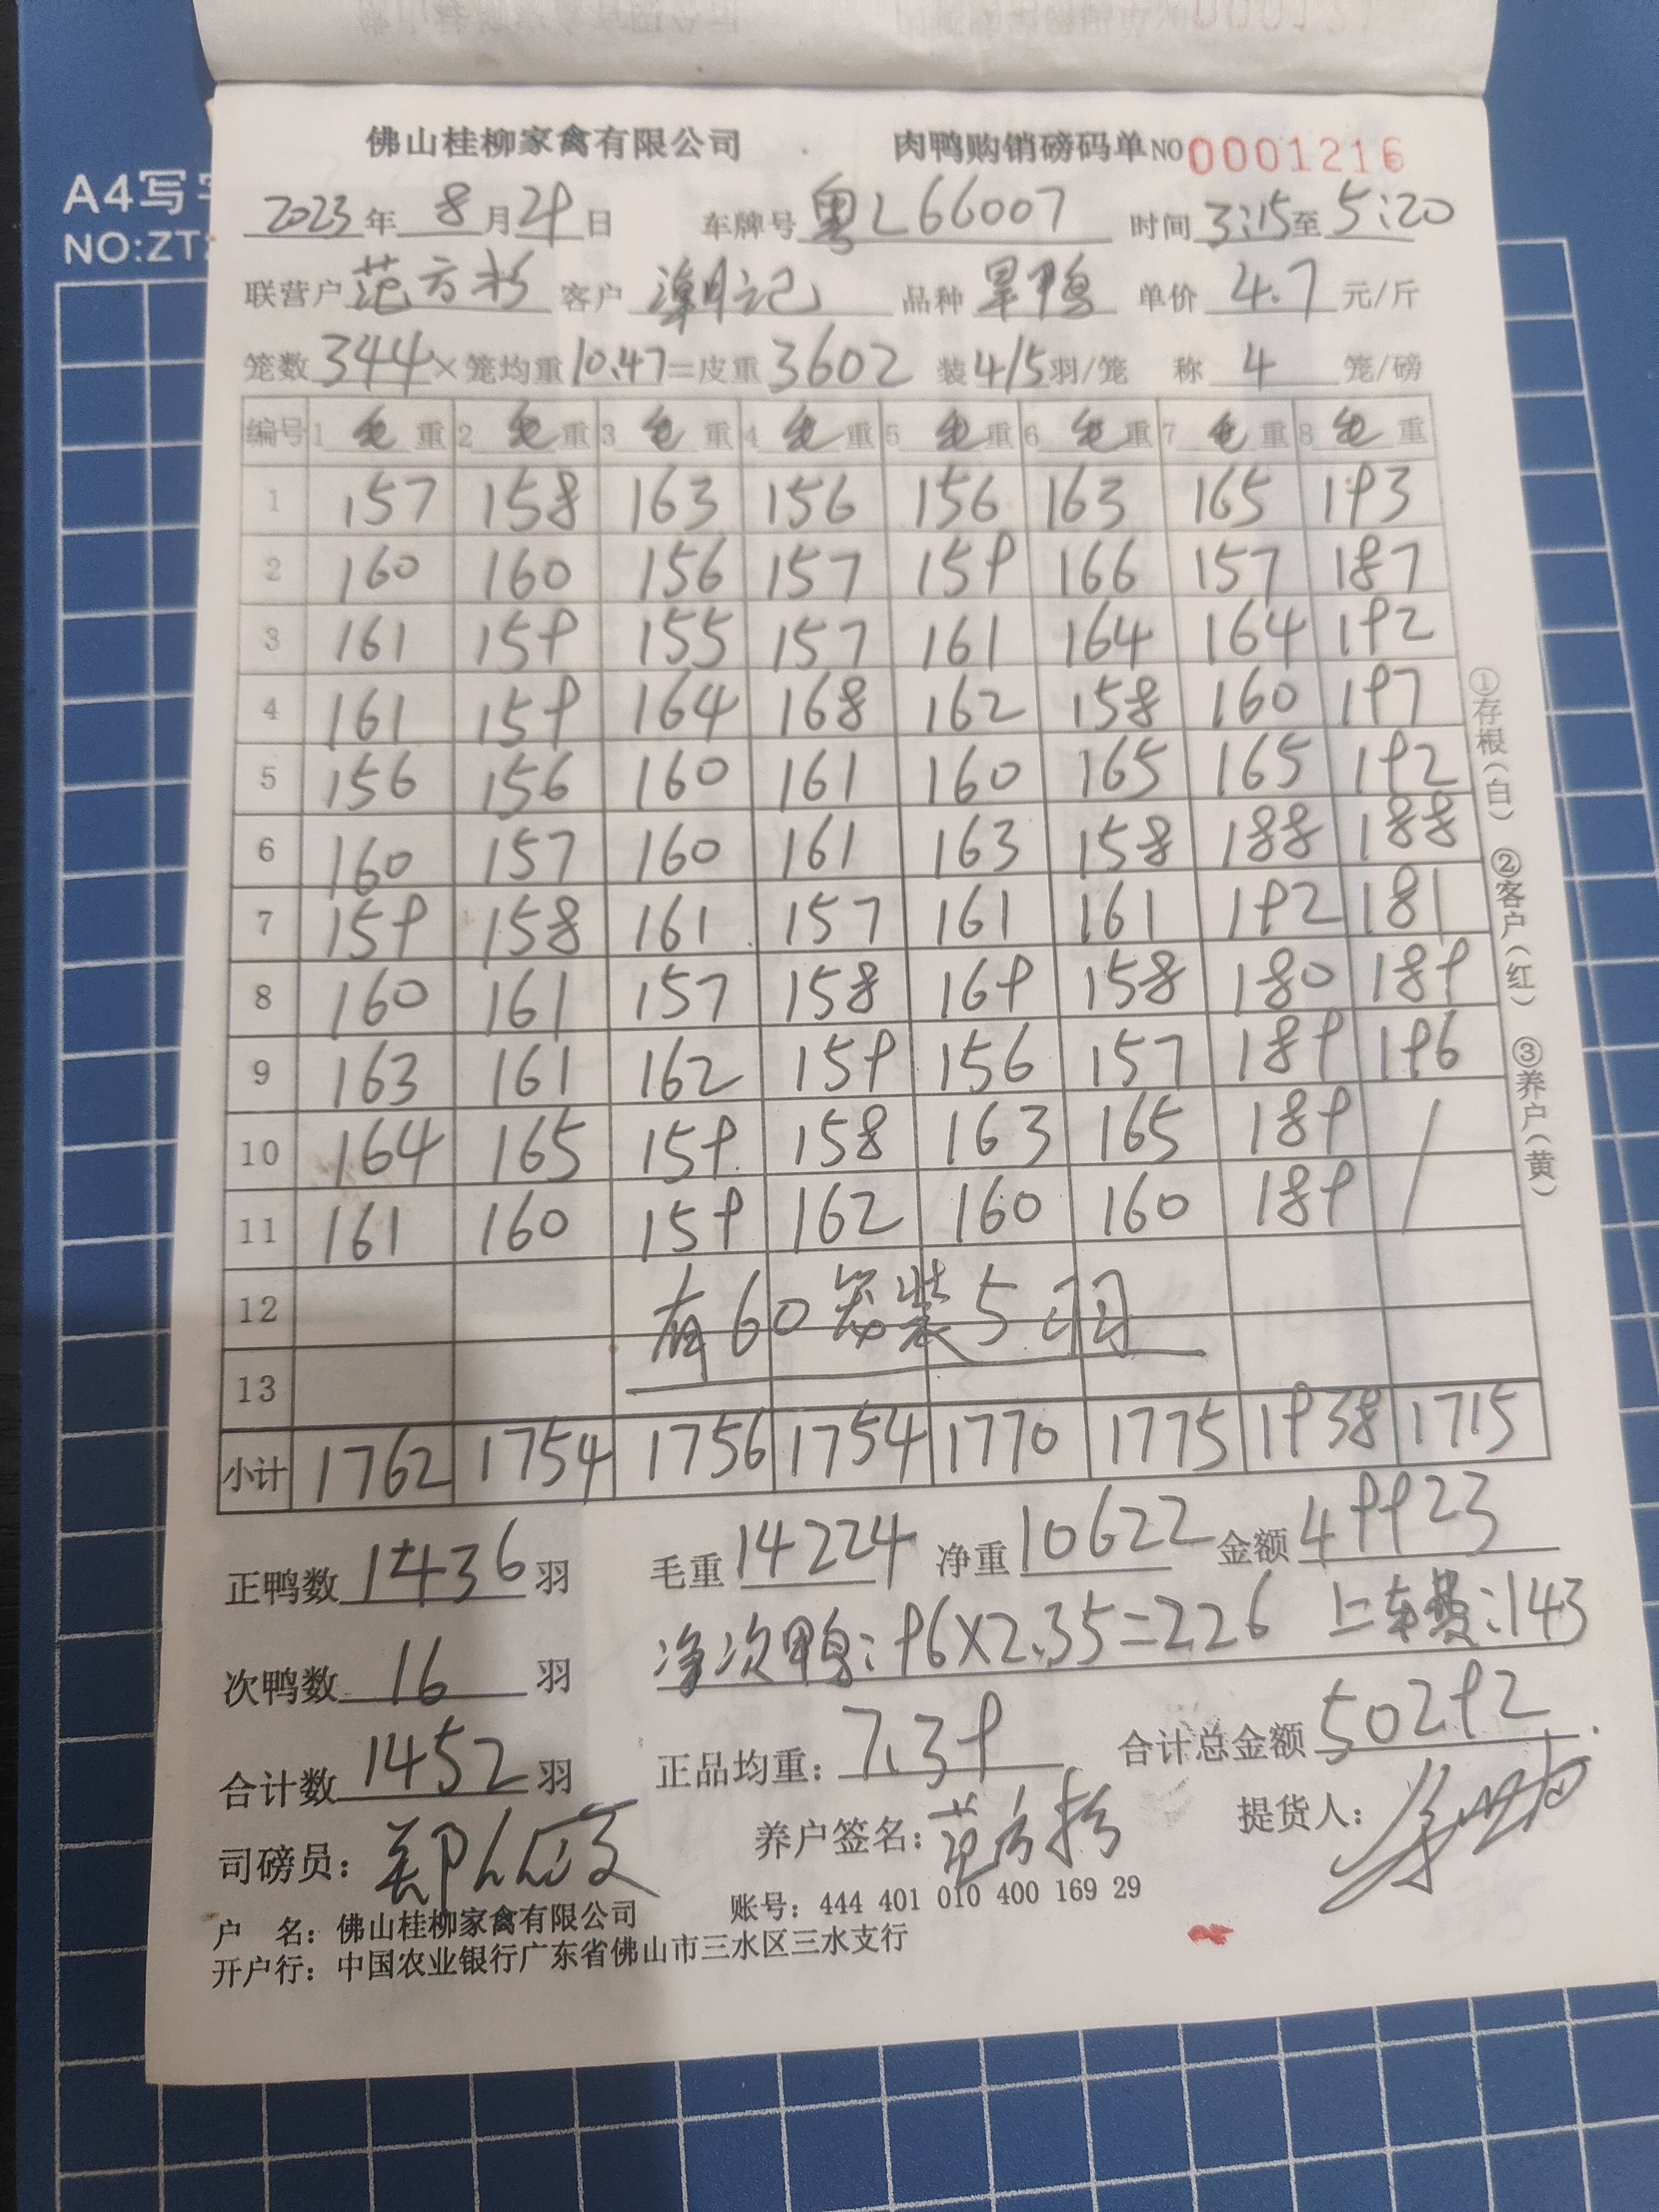 A4写字
NO:ZT
佛山桂柳家禽有限公司 肉鸭购销磅码单 NO 0001216
2023年 8月29日 车牌号 粤L66007 时间 3:15至5:20
联营户 范方杉 客户 潮记 品种 旱鸭 单价 4.7 元/斤
笼数 344 × 笼均重 10.47 = 皮重 3602 装 4/5 羽/笼 称 4 笼/磅
编号 1 毛重 2 毛重 3 毛重 4 毛重 5 毛重 6 毛重 7 毛重 8 毛重
1 157 158 163 156 156 163 165 193
2 160 160 156 157 159 166 157 187
3 161 159 155 157 161 164 164 192
4 161 159 164 168 162 158 160 197
5 156 156 160 161 160 165 165 192
6 160 157 160 161 163 158 188 188
7 159 158 161 157 161 161 192 181
8 160 161 157 158 169 158 180 189
9 163 161 162 159 156 157 189 196
10 164 165 159 158 163 165 189 /
11 161 160 159 162 160 160 189 /
12 有60笼装5羽
13
小计 1762 1754 1756 1754 1770 1775 1938 1715
①存根(白) ②客户(红) ③养户(黄)
正鸭数 1436 羽 毛重 14224 净重 10622 金额 49923
次鸭数 16 羽 净次鸭:96×2.35=226 上车费:143
合计数 1452 羽 正品均重: 7.39 合计总金额 50292
司磅员: 养户签名: 范方杉 提货人:
户 名: 佛山桂柳家禽有限公司 账号: 444 401 010 400 169 29
开户行: 中国农业银行广东省佛山市三水区三水支行